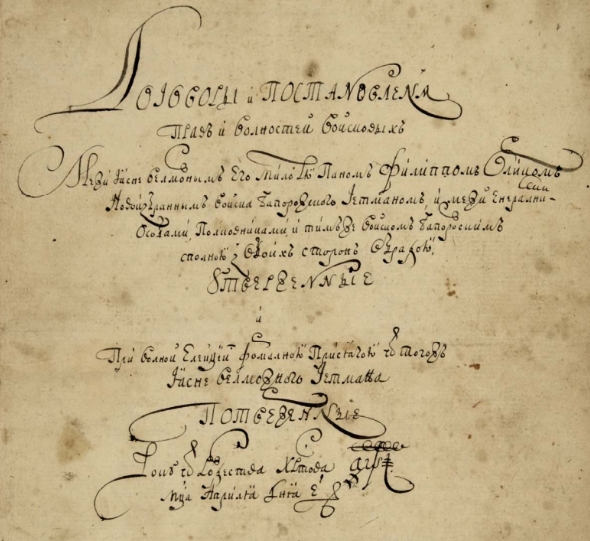 Договоры и ПОСТАНОВЛЕНѦ
Правъ и волностей Войсковыхъ
Межи Ясне велможнымъ Его Млтю Паномъ Филиппомъ Орликомъ
Новоизбраннымъ войска Запорожского Гетманомъ, и межи Енерални-
Особами, Полковниками, и тимъже войскомъ Запорозкимъ
сполною з обоихъ сторонъ обрадою,
УТВЕРЖЕННЫЕ
и
При волной Елекции формалною Присягою ѿ тогожъ
Ясне велможного Гетмана
ПОТВЕРЖЕННЫЕ
Року ѿ Рождества Христова ҂аѱі
Мця Априля Дня Е